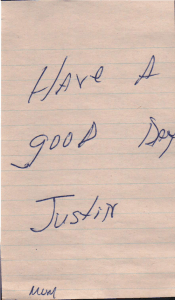 Have A
good Day
Justin
Mum